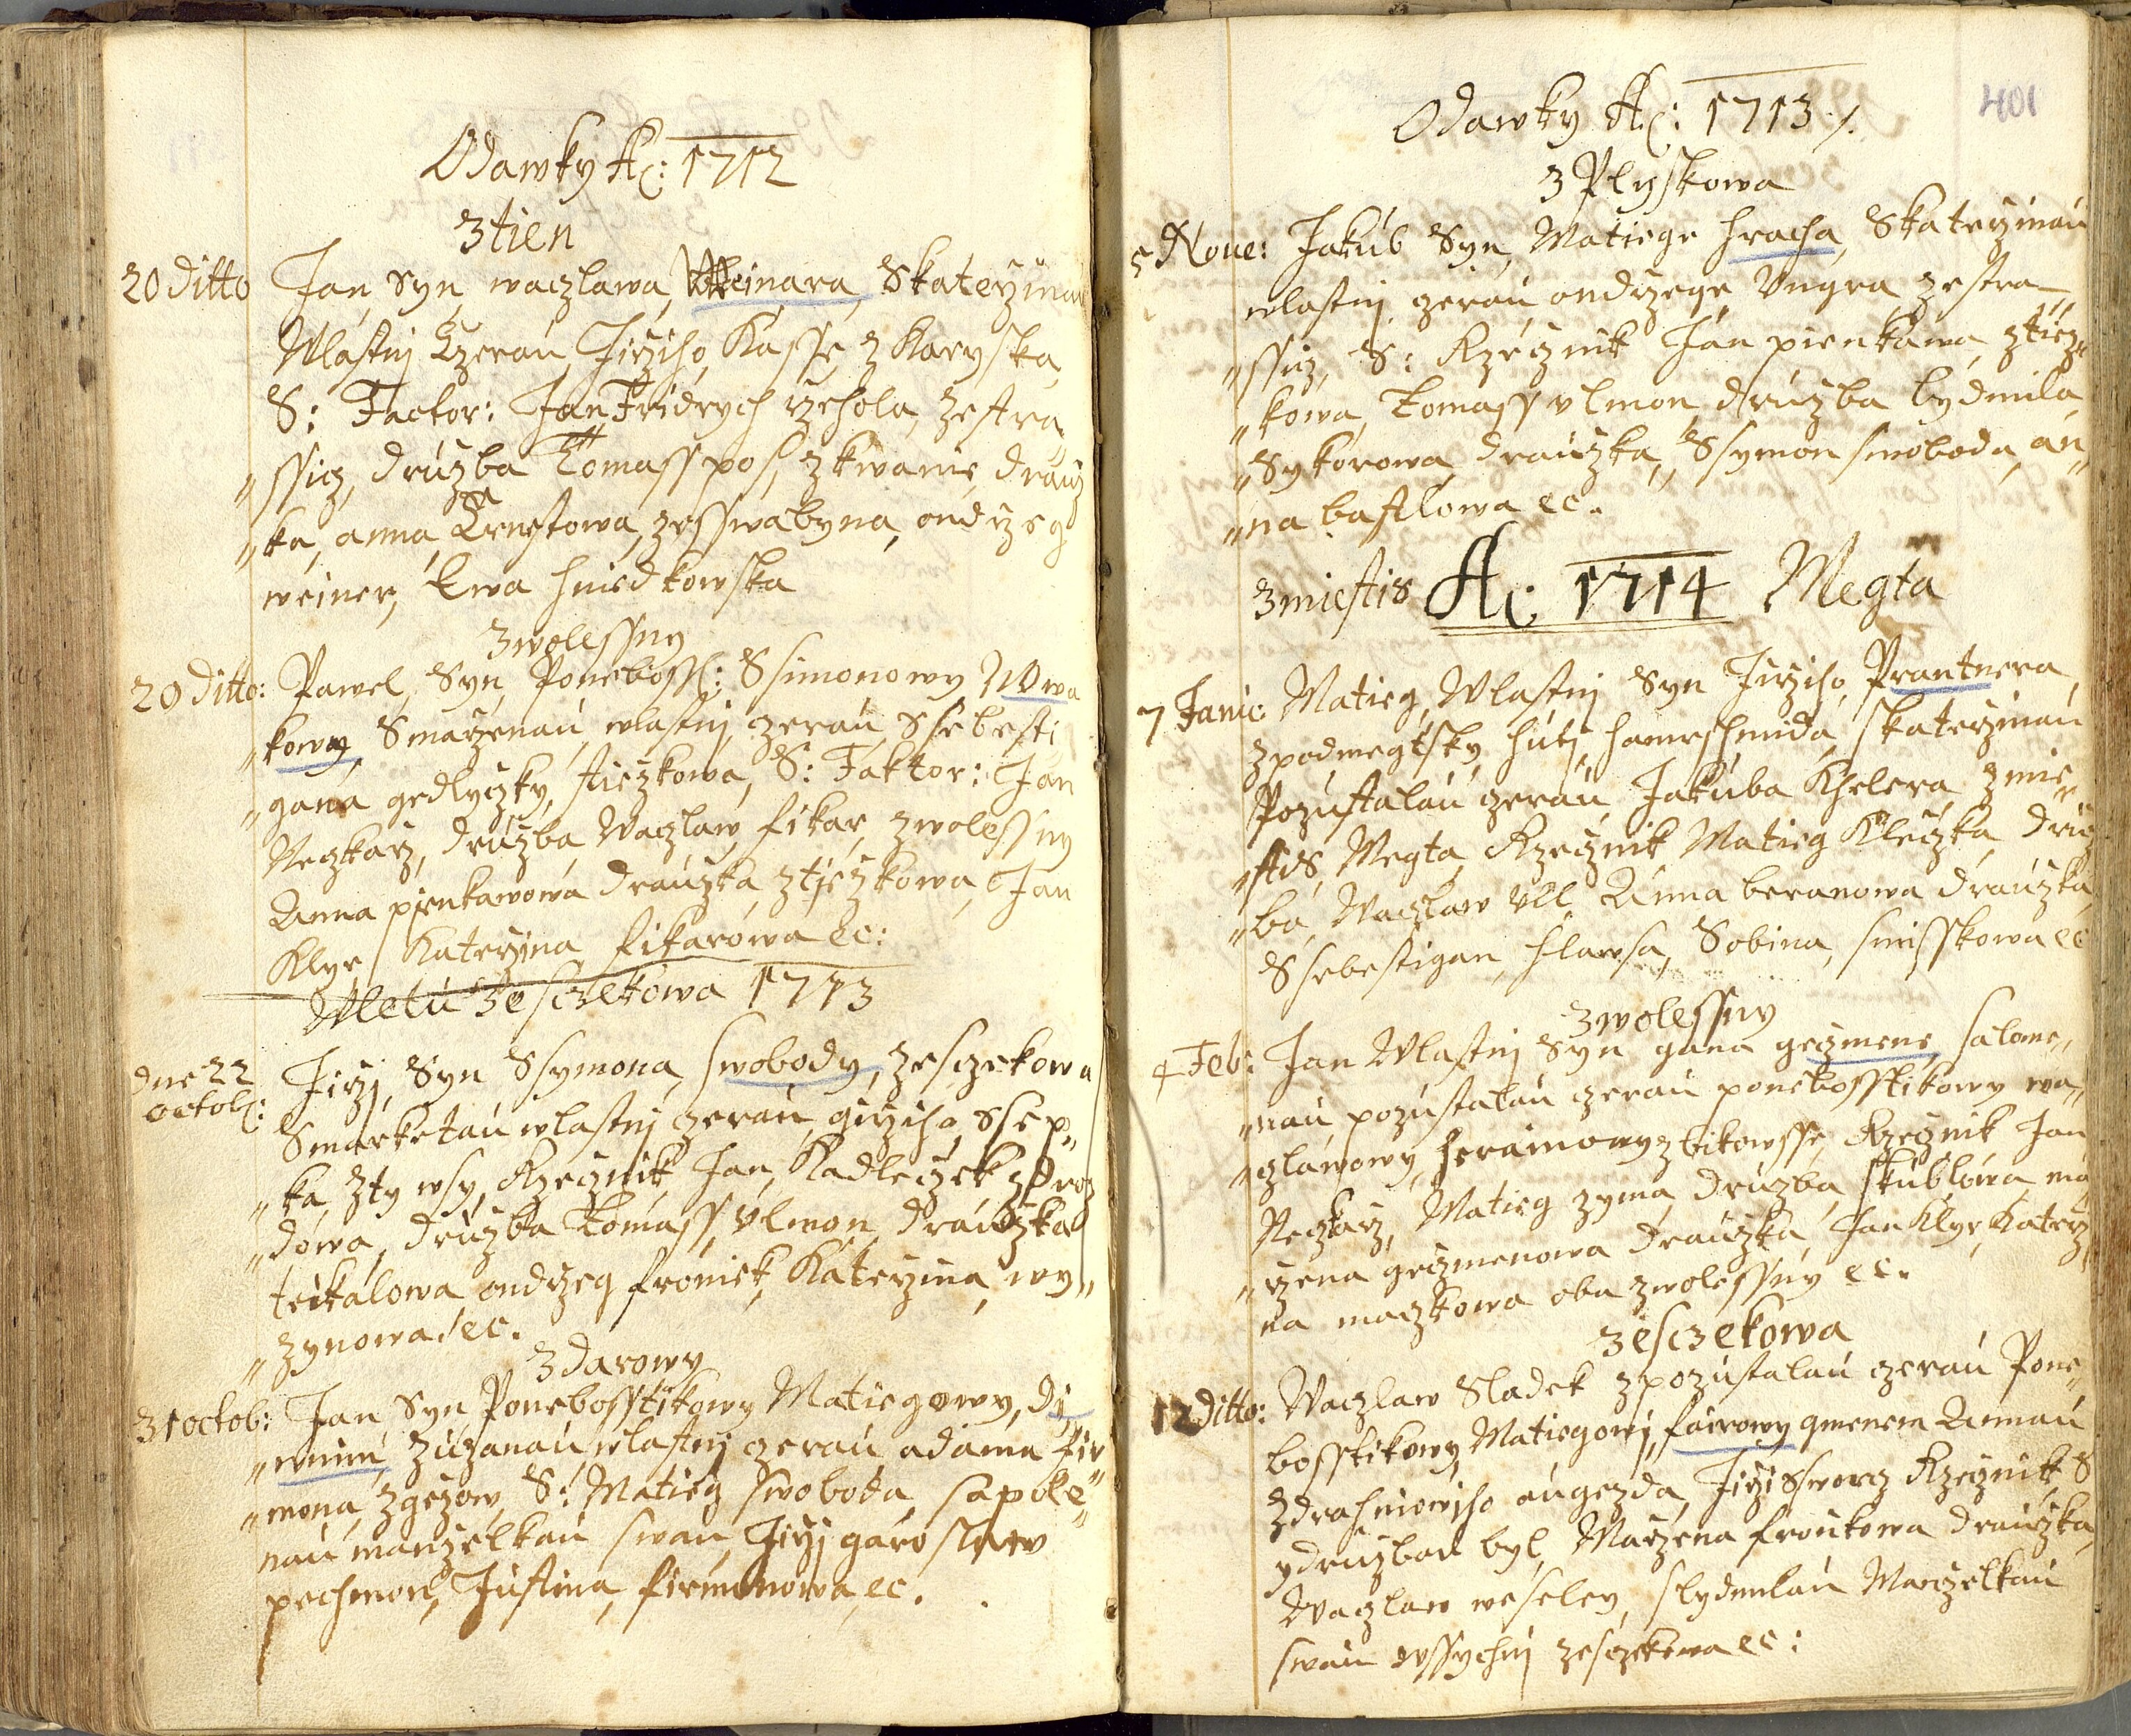 Odawky Ac: 1712
Ztien
20 ditto Jan, Syn, waczlawa, Weinara, Skateržinau
Wlastnj Dczerau, Jiržiho, Kasse, z Karyska,
S: Factor: Jan Fridrych ržehola, zestra„
„ssicz, družba Tomass pos, z kwanie, drauž
„ka, anna Ernestowa, zesswabyna, ondržeg
weiner, Ewa hniedkowska
Zwolessny
20 ditto: Pawel, Syn, Ponebossť: Ssimonowy Nowa
„kowy, Smarženau, wlastnj czerau, Ssebesti
„gana gedlyczky, stieżkowa, S: Faktor: Jan
Reczkarž, družba, Waczlaw, fikar, zwolessny
Anna pienkawowa draužka, ztieżkowa, Jan
Klyr, Kateržina, fikarowa ec:
Wletu Zesczekowa 1713
dne 22
octob: Jiržj, Syn Ssymona, swobody, zesczekowa
Smarketau wlastnj czerau, giržiho, Ssep„
„ka, zty wsy, Rzecznik, Jan, Kadleczek z Proz
„dowa, družba Tomass, Ulmon, draužka
teikalowa, ondržeg froniek, Kateržina, wy„
„zynowa ec.
Zdarowy
31 octob: Jan, Syn Ponebosstikowy Matiegowy, dy
„wnim, Zuzanau, wlastnj czerau, adama fir
„mona, zgezow, S: Matieg swoboda, sapole„
nau manželkau swau, Jiržj garoslaw
pechmon, Justina, firmonowa, ec.
Odawky Ac: 1713 /.
401
Z Plyskowa
5 Noue: Jakub Syn, Matiege hracha, Skateržinau
wlastnj czerau, ondržege Ungra zestra„
„ssicz, S: Rzecznik Jan pienkawa, ztież„
„kowa, Tomass ulmon, družba lydmila
„Sykorowa, draužka, Ssymon swoboda, an„
„na bastlowa ec.
Zmiestis Ac. 1714 Megta
7 Janic Matieg, Wlastnj Syn Jiržiho, Prantnera,
zpodmegtsky, huti, hamrschmida, skateržinau
Pozustalau czerau, Jakuba Khelera, zmie„
„stis, Megta, Rzecznik, Matieg Kleczka, druž
„ba, Waczlaw Ull, Anna beranowa draužka,
Ssebestigan, hlawsa, Sobina, smisskowa ec
Zwolessny
4 Feb: Jan Wlastnj Syn gana geżmene, salome„
„nau, pozustalau czerau ponebosstikowy wa„
„czlawowy, heramowy zbikowsse, Rzecznik Jan
Reczkarž, Matieg zyma, družba, skublowa ma
„ržena geżmenowa draužka, Jan Klyr, Katerž
na maczkowa oba zwolessny ec.
Zesczekowa
12 ditto: Waczlaw Sladek z pozustalau czerau Pone„
bosstikowy, Matiegowj, fairowy gmenem Annau
zdrahniowiho augezda, Jiržj Sswercz Rzecznik, S
ydružbau byl, Maržena froukowa draužka,
Waczlaw weseley, slydmilau Manželkau
swau wssychnj zesczekowa ec: